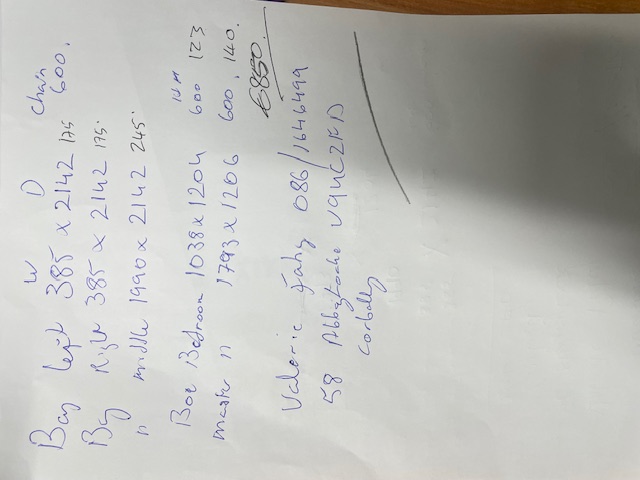 W D Chain
Bay left 385 x 2142 175 600.
Bay Right 385 x 2142 175.
" middle 1990 x 2142 245.
Box Bedroom 1038 x 1204 600 123
master " 1793 x 1206 600. 140.
€850.
Valerie Fahy 086/1646499
58 Abbylocke V94C2KD
Corbally